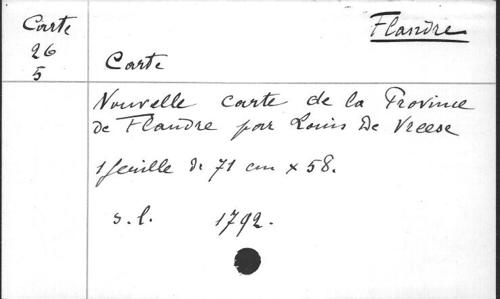 Carte
26
5
Flandre
Carte
Nouvelle carte de la Province
de Flandre par Louis De Vreese
1 feuille de 71 cm x 58.
s.l. 1792.